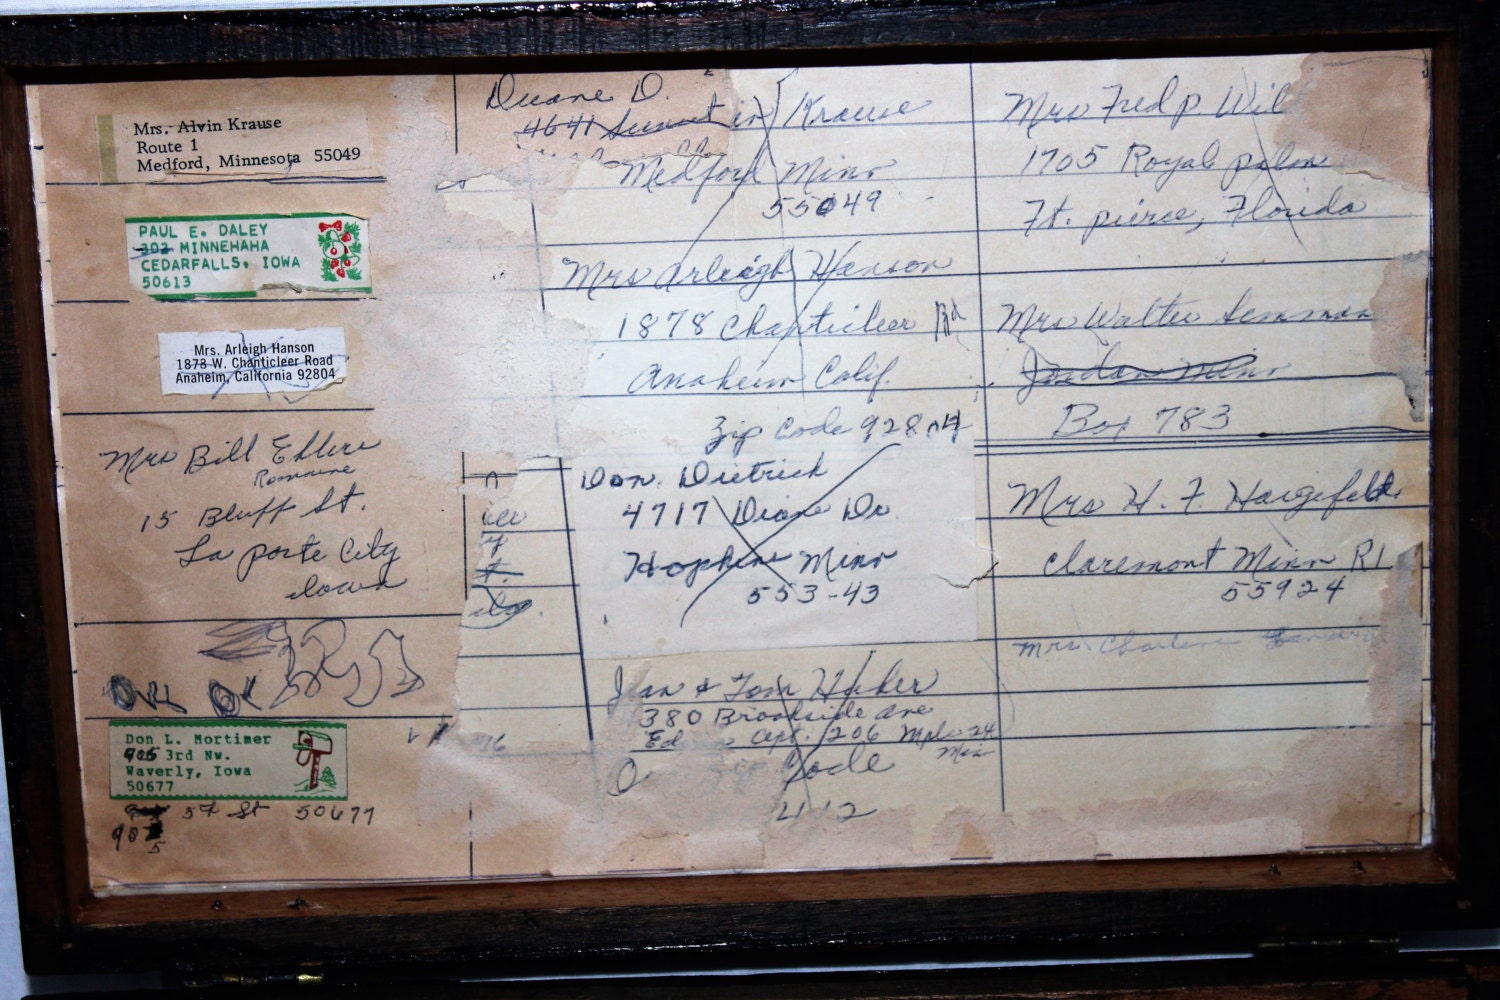 Mrs. Alvin Krause
Route 1
Medford, Minnesota 55049
PAUL E. DALEY
302 MINNEHAHA
CEDARFALLS, IOWA
50613
Mrs. Arleigh Hanson
1878 W. Chanticleer Road
Anaheim, California 92804
Mrs Bill Ehlers
Romaine
15 Bluff St.
La porte City
Iowa
Don L. Mortimer
905 3rd Nw.
Waverly, Iowa
50677
5th St 50677
903
5
Duane D.
4641
Krause
Medford Minn
55049
Mrs Arleigh Hanson
1878 Chanticleer Rd
Anaheim Calif.
Zip Code 92804
Don. Dietrich
4717 Diane Dr.
Hopkins Minn
553-43
Jean & Tom Huber
380 Brookside Ave
Apt. 206 Mpls 24
Minn
Code
Mrs Fred P. Wil
1705 Royal palm
Ft. pierce, Florida
Mrs Walter
Jordan Minn
Box 783
Mrs H. F. Hargifeldt
Claremont Minn R1
55924
Mrs. Charlene